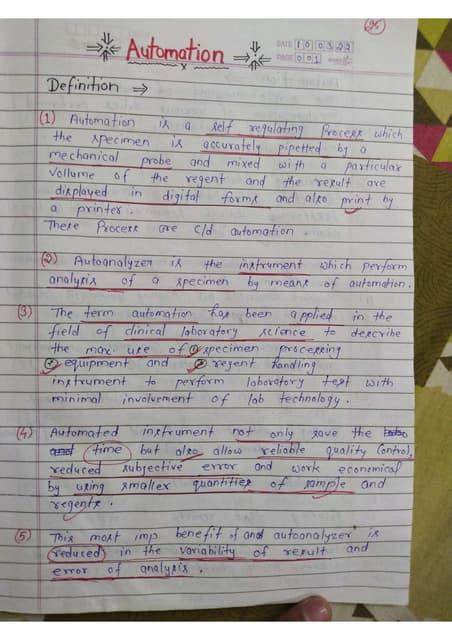 25
DATE 10 03 22
Automation
PAGE 001
Definition ⇒
(1) Automation is a self regulating Process which
the specimen is accurately pipetted by a
mechanical probe and mixed with a particular
volume of the regent and the result are
displayed in digital forms and also print by
a printer.
These Process are c/d automation.
(2) Autoanalyzer is the instrument which perform
analysis of a specimen by means of automation.
(3) The term automation has been applied in the
field of clinical laboratory science to describe
the max. use of ① specimen processing
② equipment and ③ regent handling
instrument to perform laboratory test with
minimal involvement of lab technology.
(4) Automated instrument not only save the
time but also allow reliable quality control,
reduced subjective error and work economical
by using smaller quantities of sample and
regents.
(5) This most imp benefit of and autoanalyzer is
reduced in the variability of result and
error of analysis.